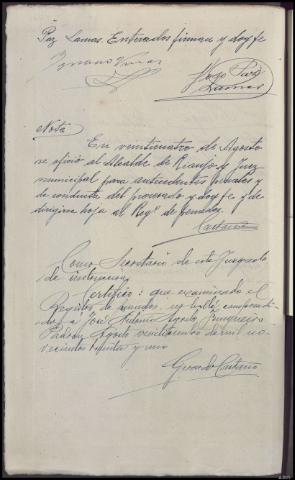 Paz Lamas. Enterados firman y doy fe
Hugo Paz
Lamas
Nota
En veinticuatro de Agosto
se oficio al Alcalde de Rianjo y Juez
municipal para antecedentes penales y
de conducta del procesado y doy fe y de
dirigirse hoja al Reg. de penados.
Castaño
Como Secretario de este Juzgado
de instruccion
Certifico: que examinado el
Registro de penados no
a José Antonio
Padron Agosto veinticuatro de mil no
vecientos treinta y uno
Gerardo Castaño